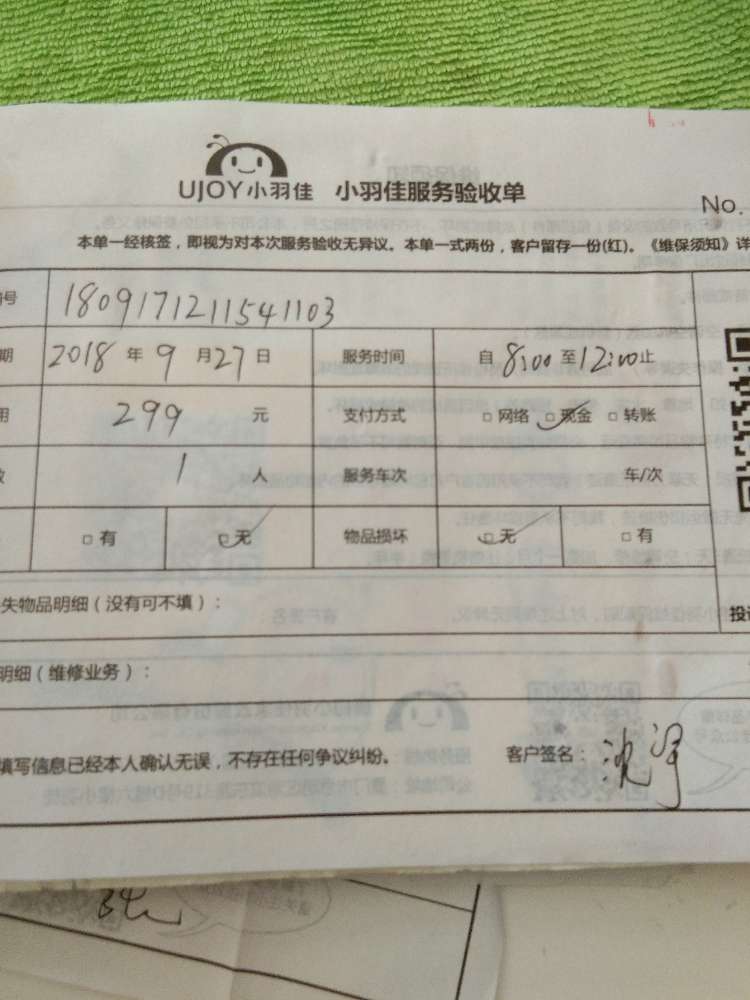 UJOY小羽佳 小羽佳服务验收单
No.
本单一经核签，即视为对本次服务验收无异议。本单一式两份，客户留存一份(红)。《维保须知》详
号 1809171211541103
期 2018 年 9 月 27 日 服务时间 自 8:00 至 12:00 止
用 299 元 支付方式 □ 网络 □ 现金 □ 转账
数 1 人 服务车次 车/次
□ 有 □ 无 物品损坏 □ 无 □ 有
失物品明细（没有可不填）：
投诉
明细（维修业务）：
填写信息已经本人确认无误，不存在任何争议纠纷。 客户签名：沈